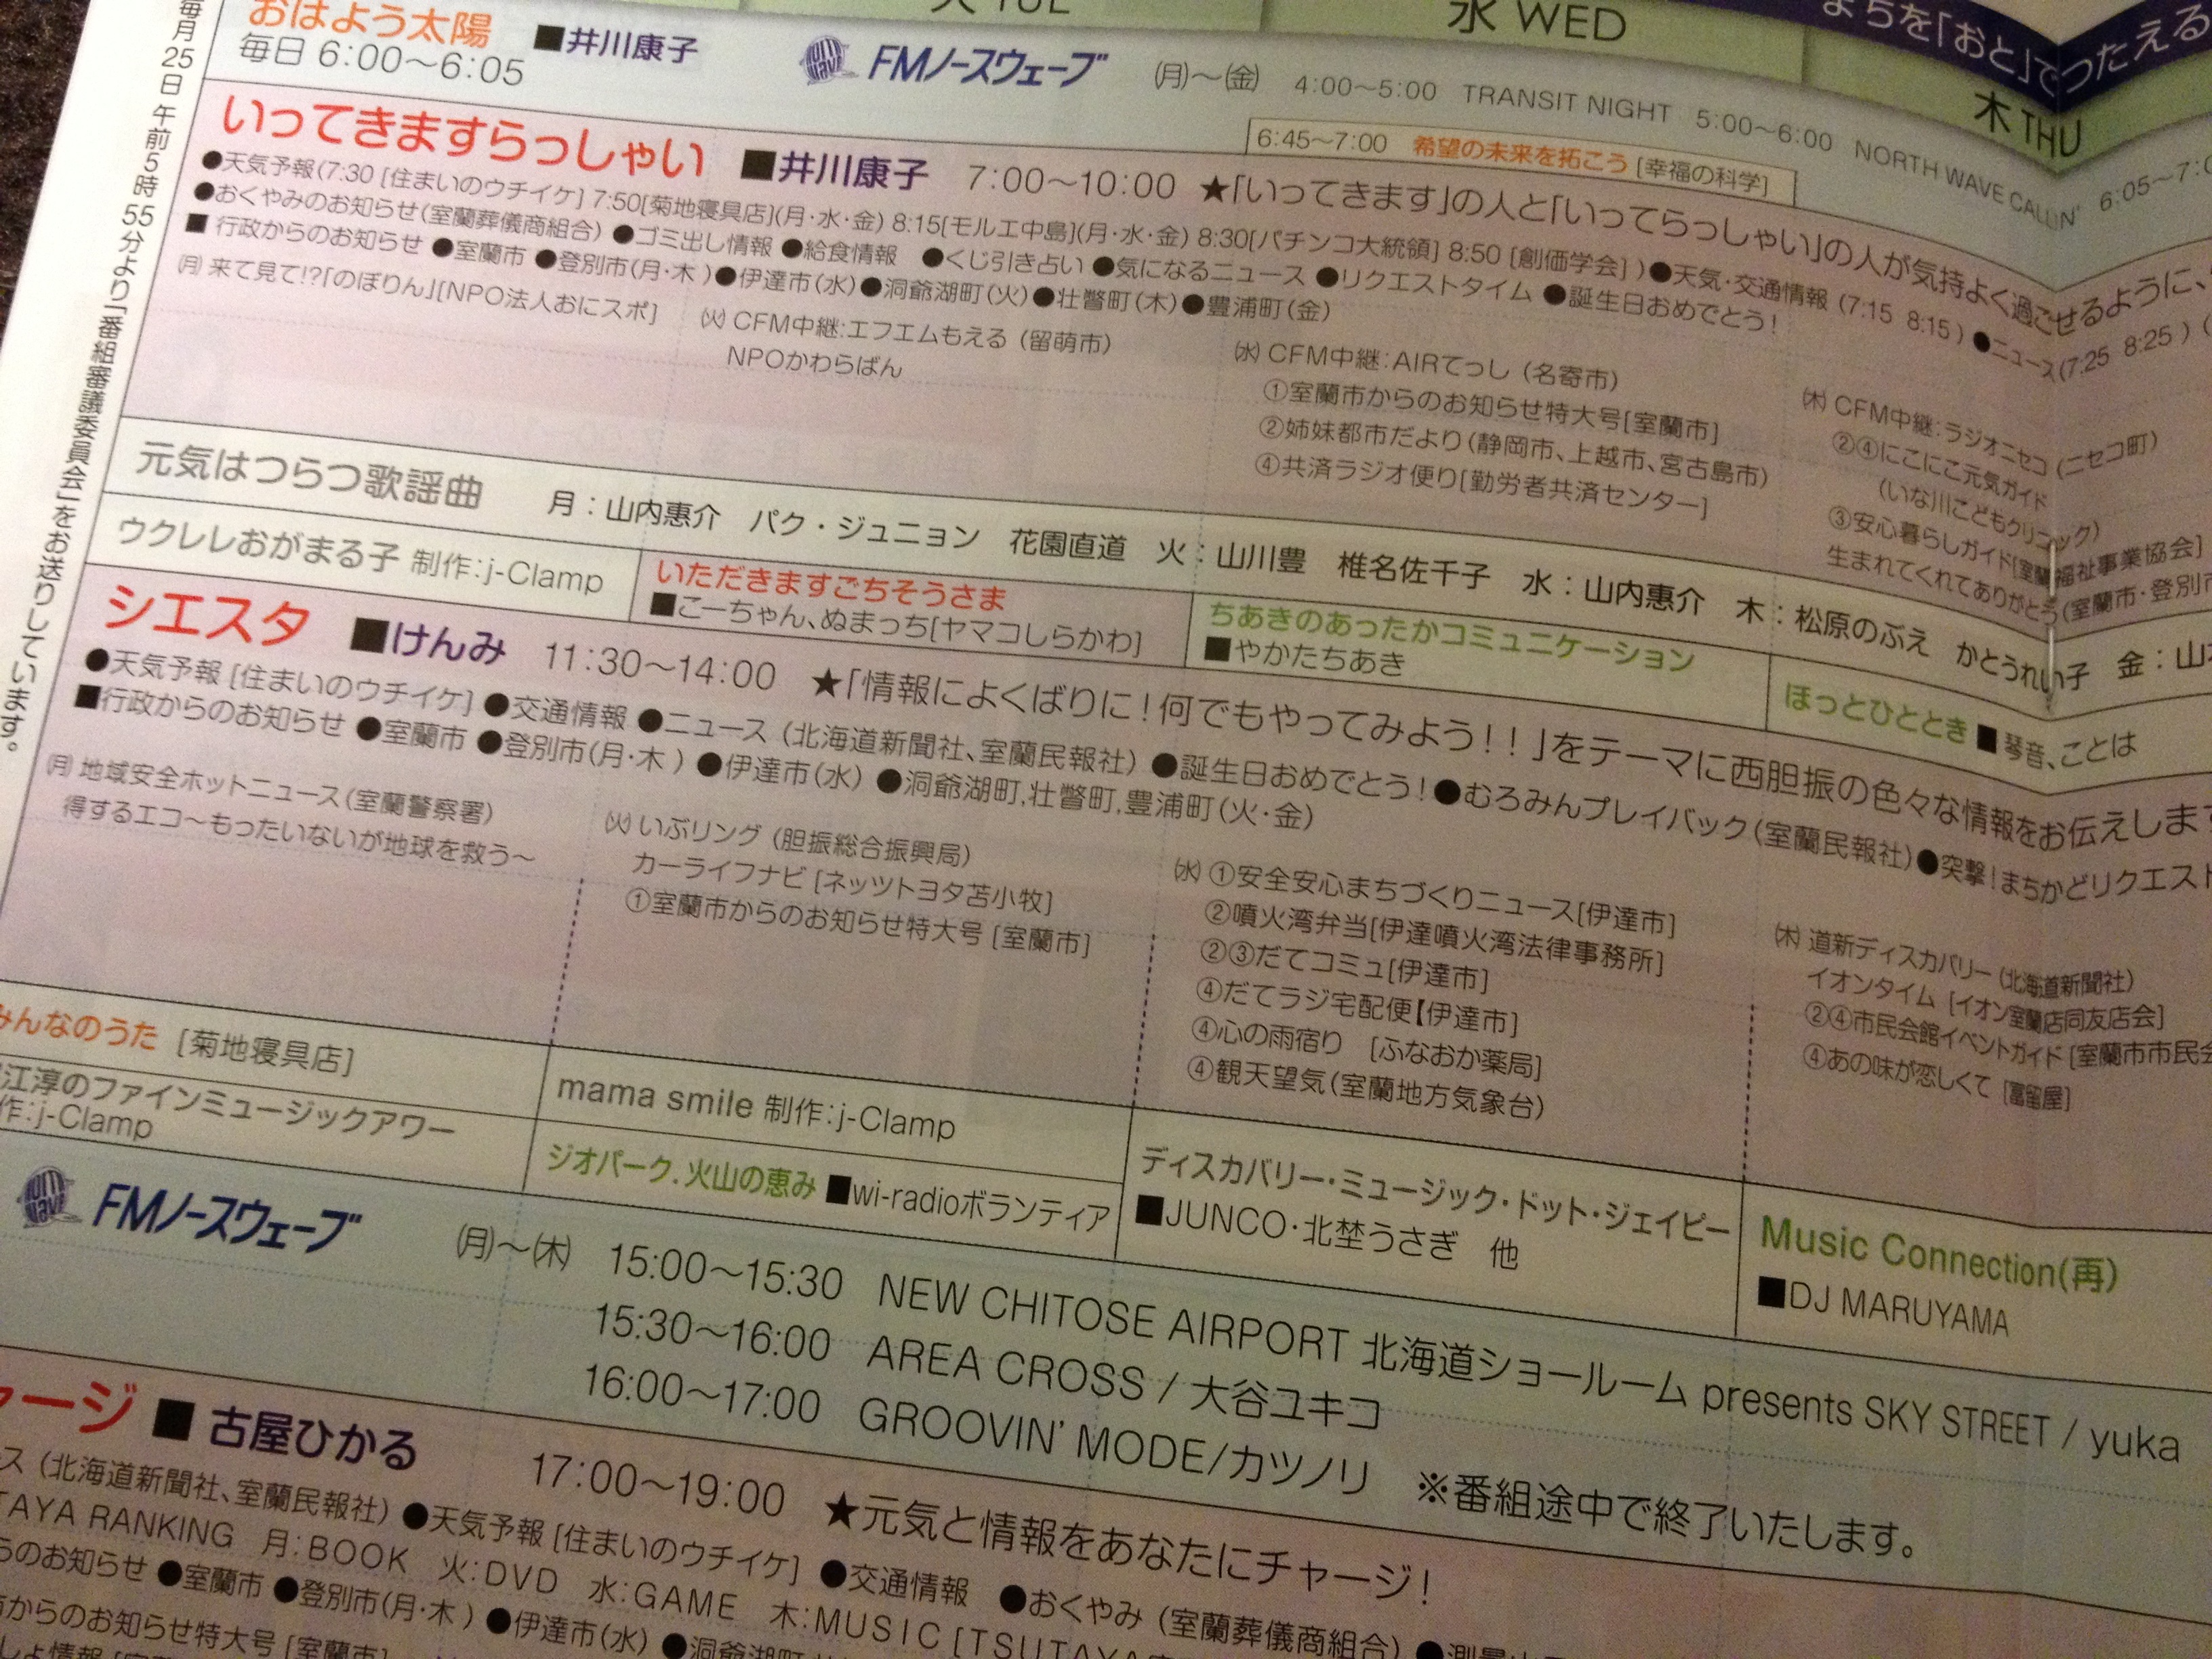 毎月25日 午前5時55分より「番組審議委員会」をお送りしています。
火 TUE
水 WED
木 THU
まちを「おと」でつたえる
おはよう太陽
毎日 6:00〜6:05 ■井川康子
FMノースウェーブ (月)〜(金) 4:00〜5:00 TRANSIT NIGHT 5:00〜6:00 NORTH WAVE CALLIN' 6:05〜
6:45〜7:00 希望の未来を拓こう [幸福の科学]
いってきますらっしゃい ■井川康子 7:00〜10:00 ★「いってきます」の人と「いってらっしゃい」の人が気持よく過ごせるように、
●天気予報(7:30 [住まいのウチイケ] 7:50[菊地寝具店](月・水・金) 8:15[モルエ中島](月・水・金) 8:30[パチンコ大統領] 8:50 [創価学会] )●天気・交通情報 (7:15 8:15 ) ●ニュース(7:25 8:25 )
●おくやみのお知らせ(室蘭葬儀商組合) ●ゴミ出し情報 ●給食情報 ●くじ引き占い ●気になるニュース ●リクエストタイム ●誕生日おめでとう!
■ 行政からのお知らせ ●室蘭市 ●登別市(月・木 )●伊達市(水)●洞爺湖町(火)●壮瞥町(木)●豊浦町(金)
(月) 来て見て!?「のぼりん」[NPO法人おにスポ]
(火) CFM中継:エフエムもえる (留萌市)
NPOかわらばん
(水) CFM中継:AIRてっし (名寄市)
①室蘭市からのお知らせ特大号[室蘭市]
②姉妹都市だより(静岡市、上越市、宮古島市)
④共済ラジオ便り[勤労者共済センター]
(木) CFM中継:ラジオニセコ (ニセコ町)
②④にこにこ元気ガイド
(いな川こどもクリニック)
③安心暮らしガイド[室蘭福祉事業協会]
生まれてくれてありがとう(室蘭市・登別市
元気はつらつ歌謡曲 月：山内惠介 パク・ジュニョン 花園直道 火：山川豊 椎名佐千子 水：山内惠介 木：松原のぶえ かとうれい子 金：山
ウクレレおがまる子 制作:j-Clamp
いただきますごちそうさま
■こーちゃん、ぬまっち[ヤマコしらかわ]
ちあきのあったかコミュニケーション
■やかたちあき
ほっとひととき ■琴音、ことは
シエスタ ■けんみ 11:30〜14:00 ★「情報によくばりに!何でもやってみよう!!」をテーマに西胆振の色々な情報をお伝えします
●天気予報 [住まいのウチイケ] ●交通情報 ●ニュース (北海道新聞社、室蘭民報社) ●誕生日おめでとう!●むろみんプレイバック(室蘭民報社)●突撃!まちかどリクエスト
■行政からのお知らせ ●室蘭市 ●登別市(月・木 ) ●伊達市(水) ●洞爺湖町,壮瞥町,豊浦町(火・金)
(月) 地域安全ホットニュース(室蘭警察署)
得するエコ〜もったいないが地球を救う〜
(火) いぶリング (胆振総合振興局)
カーライフナビ [ネッツトヨタ苫小牧]
①室蘭市からのお知らせ特大号 [室蘭市]
(水) ①安全安心まちづくりニュース[伊達市]
②噴火湾弁当[伊達噴火湾法律事務所]
②③だてコミュ[伊達市]
④だてラジ宅配便【伊達市]
④心の雨宿り [ふなおか薬局]
④観天望気(室蘭地方気象台)
(木) 道新ディスカバリー (北海道新聞社)
イオンタイム [イオン室蘭店同友店会]
②④市民会館イベントガイド [室蘭市市民会
④あの味が恋しくて [冨留屋]
みんなのうた [菊地寝具店]
江淳のファインミュージックアワー
作:j-Clamp
mama smile 制作:j-Clamp
ジオパーク.火山の恵み ■wi-radioボランティア
ディスカバリー・ミュージック・ドット・ジェイピー
■JUNCO・北埜うさぎ 他
Music Connection(再)
■DJ MARUYAMA
FMノースウェーブ (月)〜(木) 15:00〜15:30 NEW CHITOSE AIRPORT 北海道ショールーム presents SKY STREET / yuka
15:30〜16:00 AREA CROSS / 大谷ユキコ
16:00〜17:00 GROOVIN' MODE/カツノリ ※番組途中で終了いたします。
ャージ ■ 古屋ひかる 17:00〜19:00 ★元気と情報をあなたにチャージ!
ース (北海道新聞社、室蘭民報社) ●天気予報 [住まいのウチイケ] ●交通情報 ●おくやみ (室蘭葬儀商組合) ●
TAYA RANKING 月:BOOK 火:DVD 水:GAME 木:MUSIC [TSUTAYA
らのお知らせ ●室蘭市 ●登別市(月・木 ) ●伊達市(水) ●洞爺湖町
からのお知らせ特大号 [室蘭市]